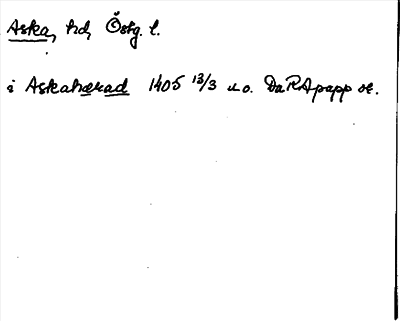 Aska, hd, Östg. l.
i Askahærad 1405 13/3 u.o. DaRApapp or.